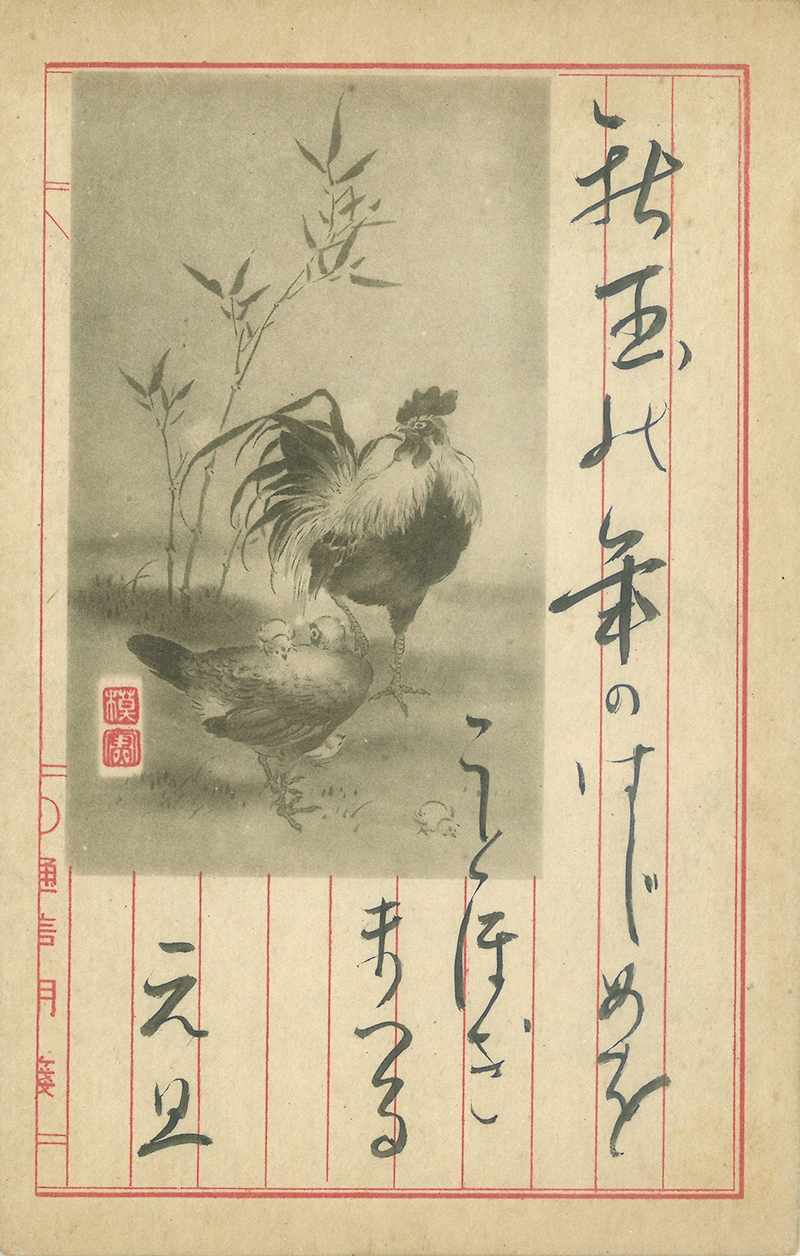 新玉の年のはじめを
ことほぎ
まつる
元旦
通信用箋